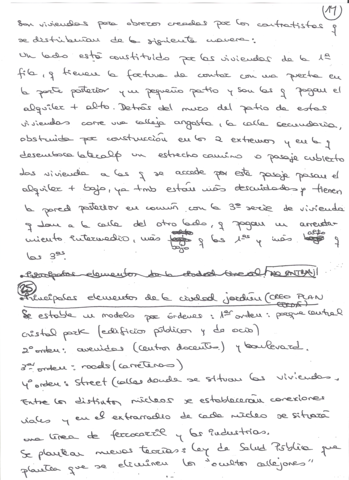 11
Son viviendas para obreros creadas por los contratistas q
se distribuían de la siguiente manera:
Un lado está constituido por las viviendas de la 1ª
fila, q tienen la fortuna de contar con una puerta en
la parte posterior y un pequeño patio y son las q pagan el
alquiler + alto. Detrás del muro del patio de estas
viviendas corre una calleja angosta, la calle secundaria,
obstruida por construcción en los 2 extremos y en la q
desemboca lateral% un estrecho camino o pasaje cubierto
Las vivienda a las q se accede por este pasaje pagan el
alquiler + bajo, ya tmb están más descuidadas y tienen
la pared posterior en común con la 3ª serie de vivienda
q dan a la calle del otro lado, q pagan un arrenda-
miento intermedio, más bajo q las 1ªs y más alto q
las 3ªs
• Principales elementos de la ciudad lineal (NO ENTRA)
25
• Principales elementos de la ciudad jardín (CREO PLAN
Se estable un modelo por órdenes: 1er orden: parque central
cristal park (edificios públicos y de ocio)
2º orden: avenidas (centros docentes) y boulevard.
3er orden: roads (carreteras)
4º orden: Street (calles donde se sitúan las viviendas.
Entre los distintos núcleos se establecerán conexiones
viales y en el extrarradio de cada núcleo se situará
una línea de ferrocarril y las industrias.
Se plantean nuevas teorías: Ley de Salud Pública que
plantea que se eliminen los "ocultos callejones"